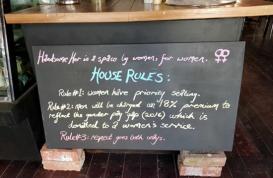 Handsome Her is a space by women, for women.
HOUSE RULES:
Rule #1: women have priority seating.
Rule #2: men will be charged an 18% premium to
reflect the gender pay gap (2016) which is
donated to a women's service.
Rule #3: respect goes both ways.